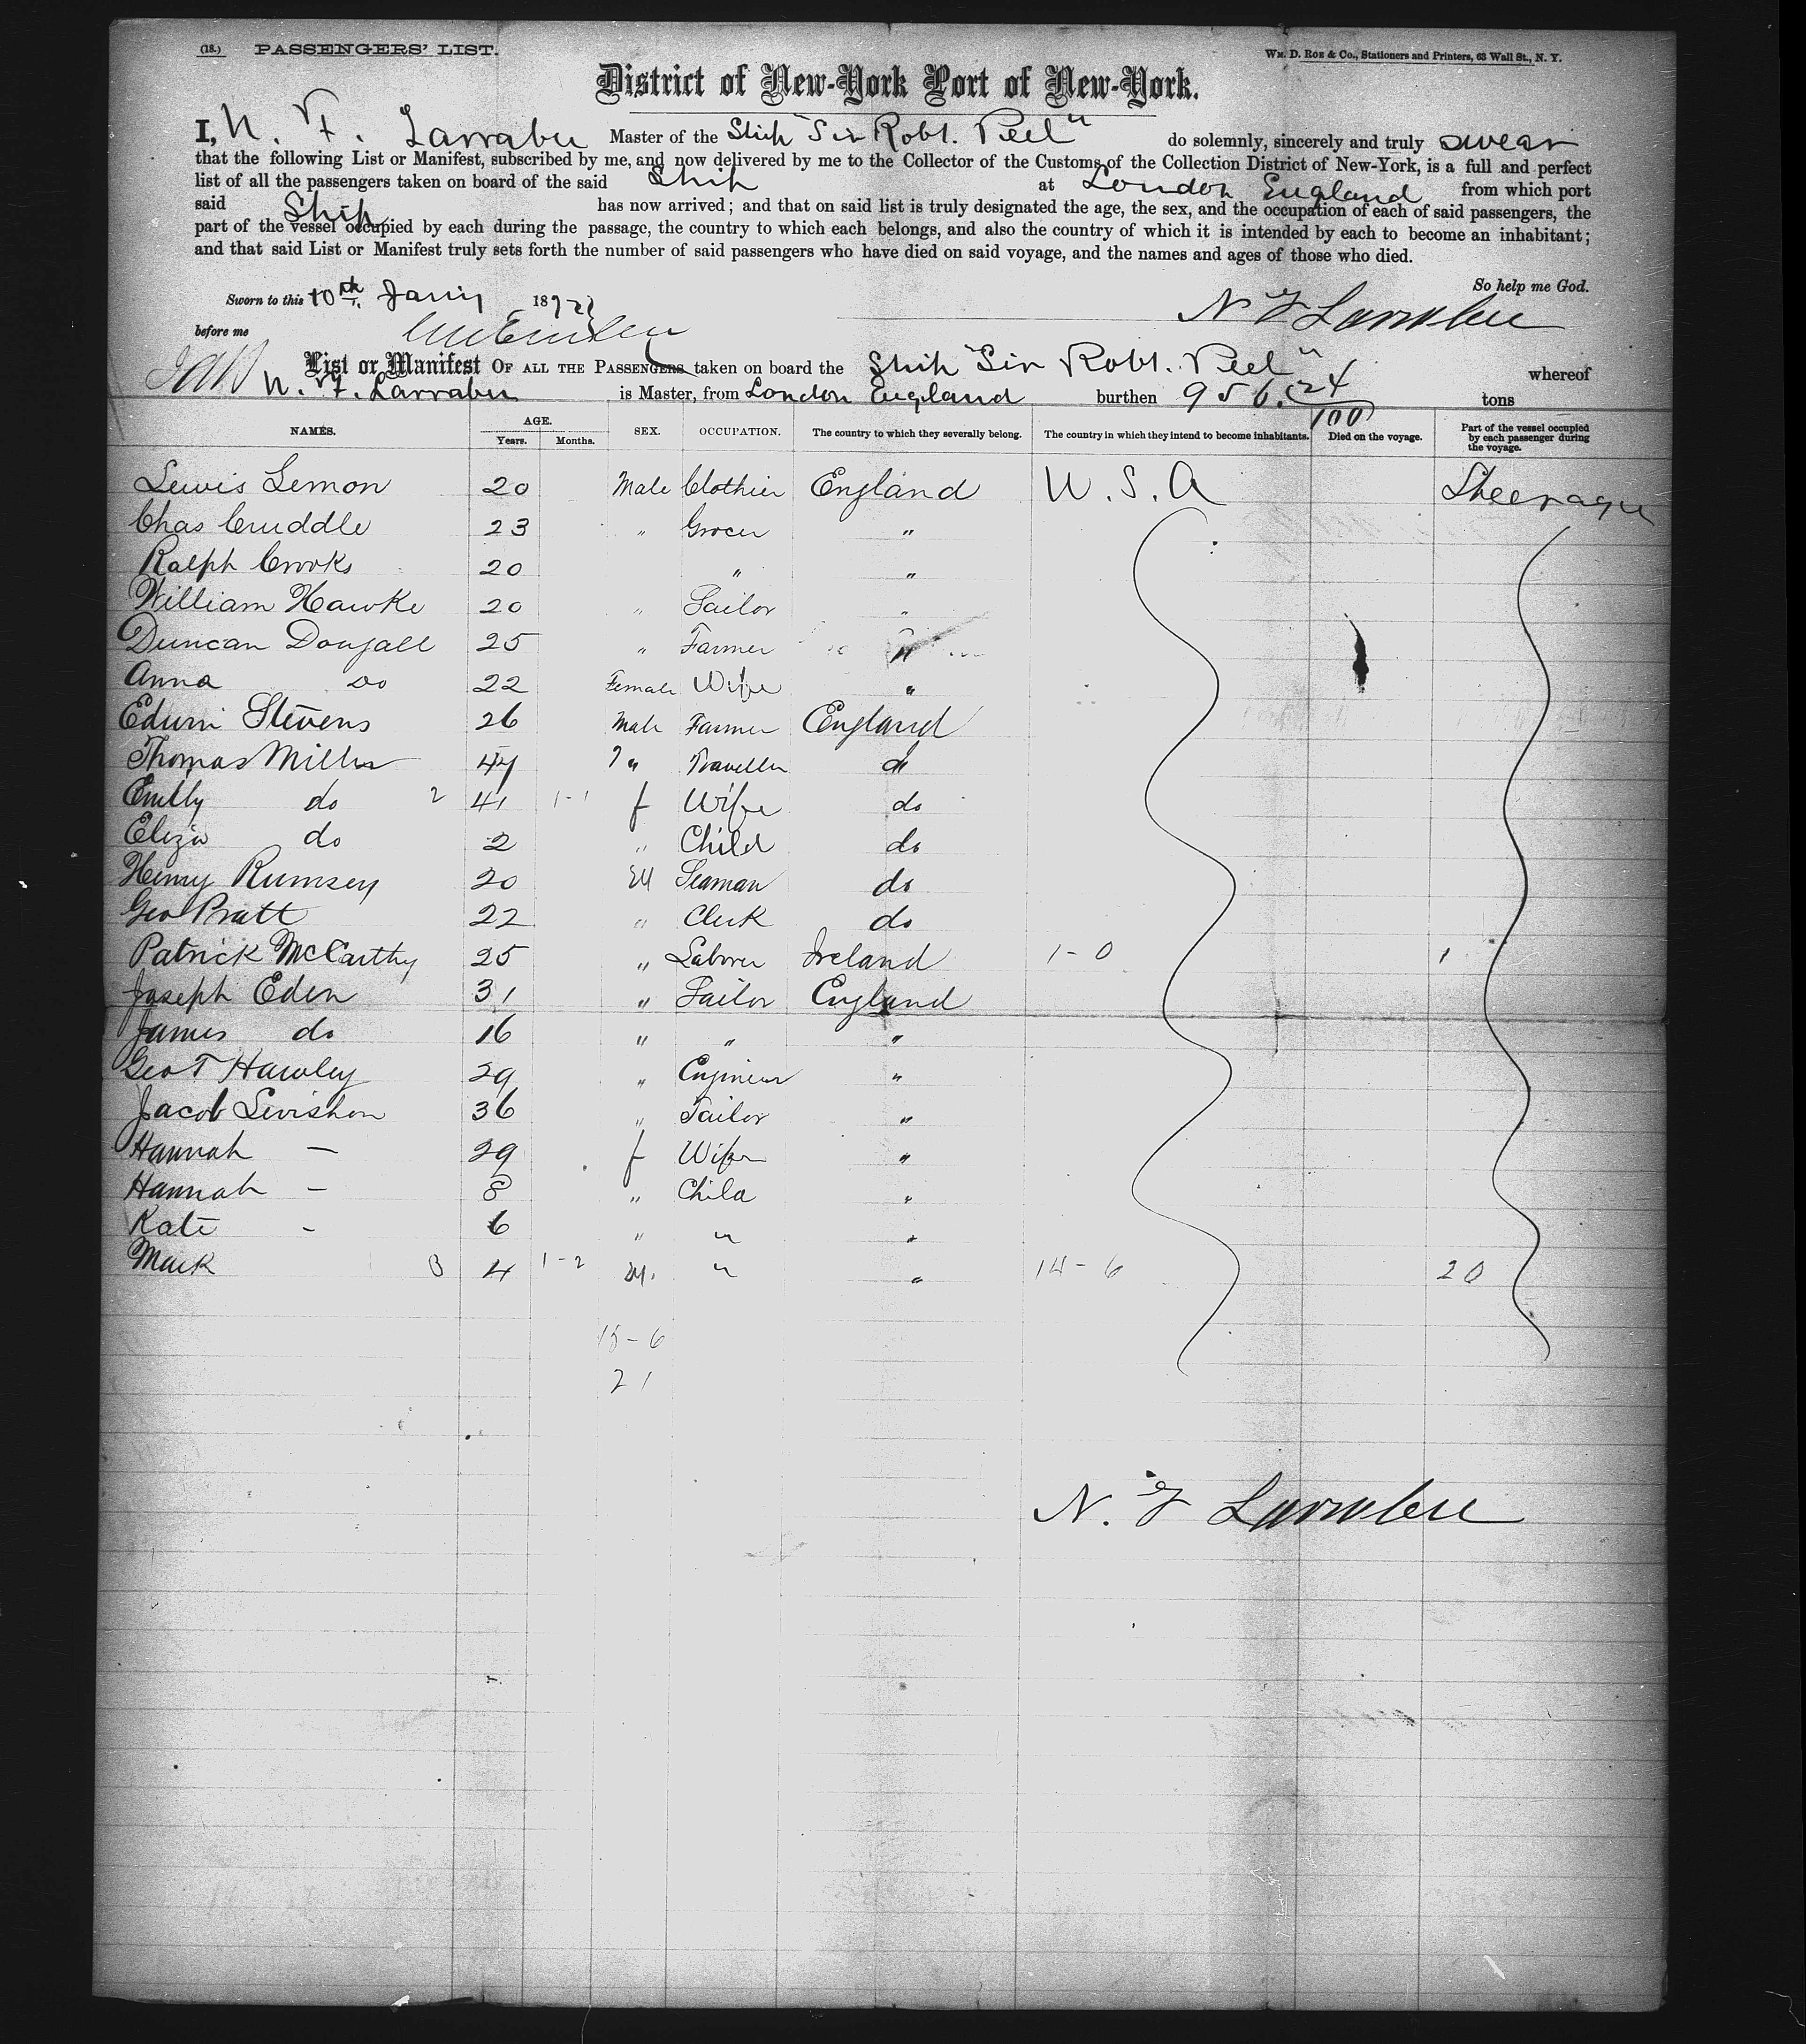 (18.) PASSENGERS' LIST. Wm. D. Roe & Co., Stationers and Printers, 63 Wall St., N. Y.
District of New-York Port of New-York.
I, N. F. Larrabee Master of the Ship "Sir Robt. Peel" do solemnly, sincerely and truly swear
that the following List or Manifest, subscribed by me, and now delivered by me to the Collector of the Customs of the Collection District of New-York, is a full and perfect
list of all the passengers taken on board of the said Ship at London England from which port
said Ship has now arrived; and that on said list is truly designated the age, the sex, and the occupation of each of said passengers, the
part of the vessel occupied by each during the passage, the country to which each belongs, and also the country of which it is intended by each to become an inhabitant;
and that said List or Manifest truly sets forth the number of said passengers who have died on said voyage, and the names and ages of those who died.
So help me God.
Sworn to this 10th. 18
N F Larrabee
before me
List or Manifest OF ALL THE PASSENGERS taken on board the Ship "Sir Robt. Peel" whereof
N. F. Larrabee is Master, from London England burthen 956. 24/100 tons
NAMES. AGE. Years. Months. SEX. OCCUPATION. The country to which they severally belong. The country in which they intend to become inhabitants. Died on the voyage. Part of the vessel occupied by each passenger during the voyage.
Lewis Lemon 20 Male Clothier England U. S. A Steerage
Chas Cruddle 23 " Grocer "
Ralph Crooks 20 " "
William Hawke 20 " Sailor "
Duncan Dougall 25 " Farmer "
Anna Do 22 Female Wife "
Edwin Stevens 26 Male Farmer England
Thomas Miller 44 " Traveller do
Emily do 2 41 1-1 f Wife do
Eliza do 2 " Child do
Henry Rumsey 20 M Seaman do
Geo Pratt 22 " Clerk do
Patrick McCarthy 25 " Laborer Ireland 1-0 1
Joseph Eden 31 " Tailor England
James do 16 " " "
Geo T Hawley 29 " Engineer "
Jacob Levishon 36 " Tailor "
Hannah — 29 f Wife "
Hannah - 8 " Child "
Kate - 6 " " "
Mark 3 4 1-2 M. " " 14-6 20
15-6
21
N. F Larrabee